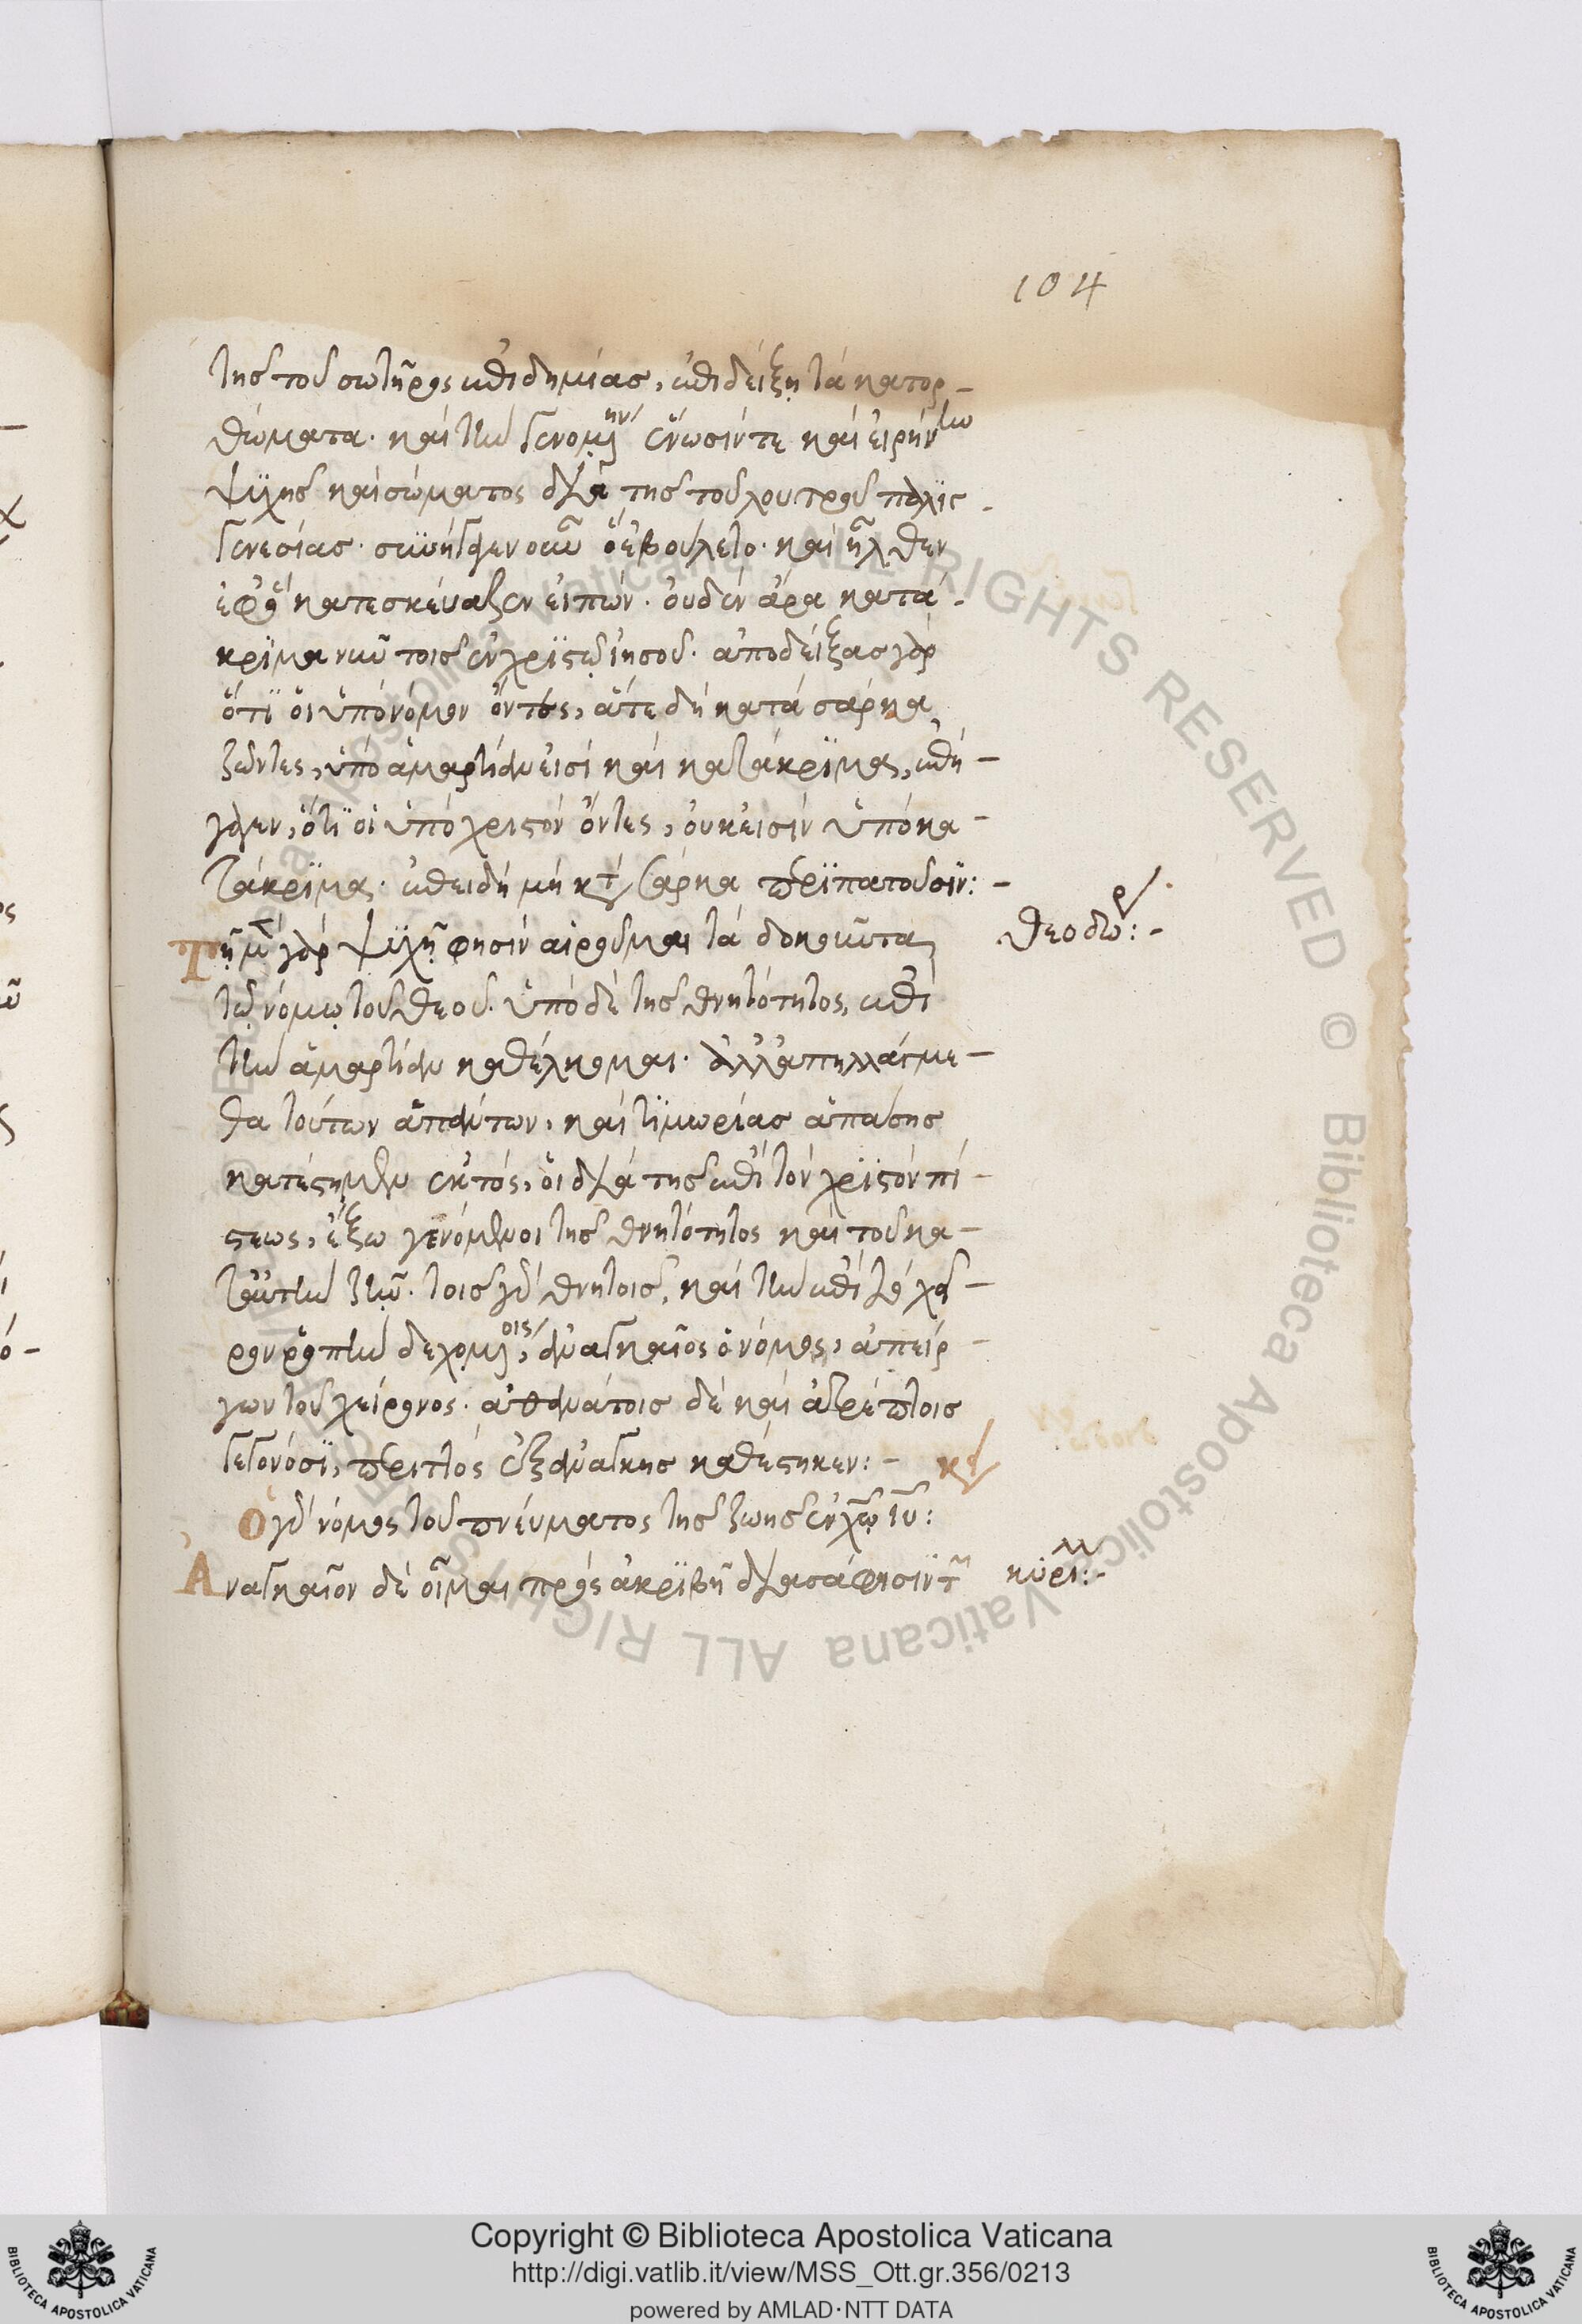 104
τῆς τοῦ σωτῆρος ἐπιδημίας, ἐπιδείξῃ τὰ κατορ-
θώματα. καὶ τὴν γενομένην ἕνωσίν τε καὶ εἰρήνην
ψυχῆς καὶ σώματος διὰ τῆς τοῦ λουτροῦ παλιγ-
γενεσίας. συνήγαγεν οὖν ὃ ἐβούλετο. καὶ ἦλθεν
ἐφ' ὃ κατεσκεύαζεν εἰπών. οὐδὲν ἄρα κατά-
κριμα νῦν τοῖς ἐν χριστῷ ἰησοῦ. ἀποδείξας γὰρ
ὅτι οἱ ὑπὸ νόμον ὄντες, ἅτε δὴ κατὰ σάρκα
ζῶντες, ὑπὸ ἁμαρτίαν εἰσὶ καὶ κατάκριμα, ἐπή-
γαγεν, ὅτι οἱ ὑπὸ χριστὸν ὄντες, οὐκ εἰσὶν ὑπὸ κα-
τάκριμα. ἐπειδὴ μὴ κατὰ σάρκα περιπατοῦσιν:-
Τῇ μὲν γὰρ ψυχῇ φησὶν αἱροῦμαι τὰ δοκοῦντα
θεοδωρ:-
τῷ νόμῳ τοῦ θεοῦ. ὑπὸ δὲ τῆς θνητότητος, ἐπὶ
τὴν ἁμαρτίαν καθέλκομαι. ἀλλ' ἀπηλλάγμε-
θα τούτων ἁπάντων, καὶ τιμωρίας ἁπάσης
κατέστημεν ἐκτός, οἱ διὰ τῆς ἐπὶ τὸν χριστὸν πί-
στεως, ἔξω γενόμενοι τῆς θνητότητος καὶ τοῦ κα-
τ' αὐτὴν ζῆν. τοῖς γὰρ θνητοῖς, καὶ τὴν ἐπὶ τὸ χεῖ-
ρον ῥοπὴν δεχομένοις, ἀναγκαῖος ὁ νόμος, ἀπείρ-
γων τοῦ χείρονος. ἀθανάτοις δὲ καὶ ἀτρέπτοις
γεγονόσι, περιττὸς ἐξ ἀνάγκης καθέστηκεν:- κει
Ὁ γὰρ νόμος τοῦ πνεύματος τῆς ζωῆς ἐν χῷ ιυ:
Ἀναγκαῖον δὲ οἶμαι πρὸς ἀκριβῆ διασάφησιν τῶν
κυρίλλ:-
Copyright © Biblioteca Apostolica Vaticana
http://digi.vatlib.it/view/MSS_Ott.gr.356/0213
powered by AMLAD·NTT DATA